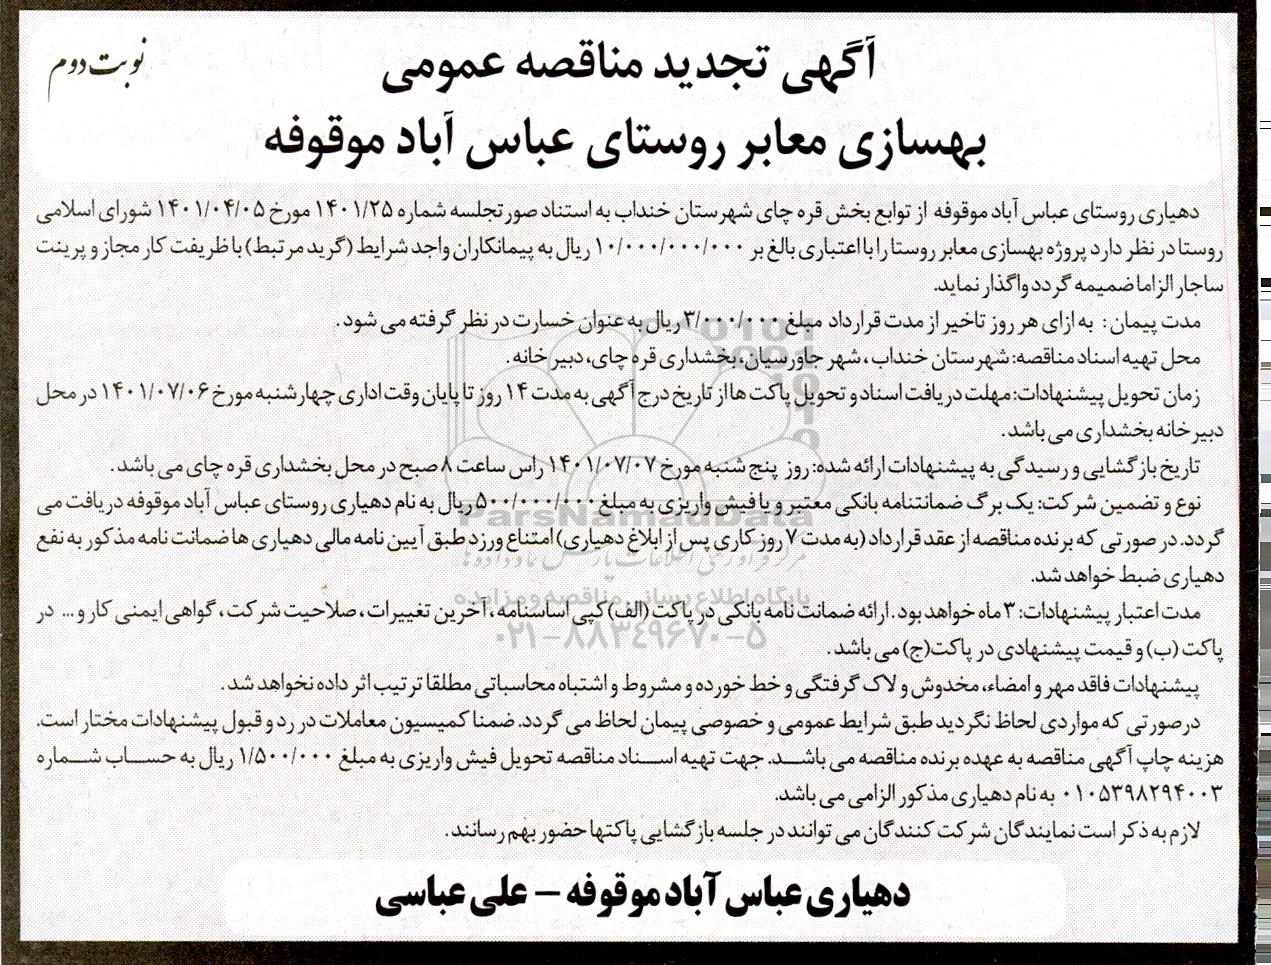 نوبت دوم
آگهی تجدید مناقصه عمومی
بهسازی معابر روستای عباس آباد موقوفه
دهیاری روستای عباس آباد موقوفه از توابع بخش قره چای شهرستان خنداب به استناد صورتجلسه شماره ۱۴۰۱/۲۵ مورخ ۱۴۰۱/۰۴/۰۵ شورای اسلامی
روستا در نظر دارد پروژه بهسازی معابر روستا را با اعتباری بالغ بر ۱۰/۰۰۰/۰۰۰/۰۰۰ ریال به پیمانکاران واجد شرایط (گرید مرتبط) با ظریفت کار مجاز و پرینت
ساجار الزاما ضمیمه گردد واگذار نماید.
مدت پیمان : به ازای هر روز تاخیر از مدت قرارداد مبلغ ۳/۰۰۰/۰۰۰ ریال به عنوان خسارت در نظر گرفته می شود .
محل تهیه اسناد مناقصه: شهرستان خنداب ، شهر جاورسیان، بخشداری قره چای، دبیر خانه .
زمان تحویل پیشنهادات: مهلت دریافت اسناد و تحویل پاکت ها از تاریخ درج آگهی به مدت ۱۴ روز تا پایان وقت اداری چهارشنبه مورخ ۱۴۰۱/۰۷/۰۶ در محل
دبیرخانه بخشداری می باشد .
تاریخ بازگشایی و رسیدگی به پیشنهادات ارائه شده: روز پنج شنبه مورخ ۱۴۰۱/۰۷/۰۷ راس ساعت ۸ صبح در محل بخشداری قره چای می باشد .
نوع و تضمین شرکت: یک برگ ضمانتنامه بانکی معتبر و یا فیش واریزی به مبلغ ۵۰۰/۰۰۰/۰۰۰ ریال به نام دهیاری روستای عباس آباد موقوفه دریافت می
گردد. در صورتی که برنده مناقصه از عقد قرارداد (به مدت ۷ روز کاری پس از ابلاغ دهیاری) امتناع ورزد طبق آیین نامه مالی دهیاری ها ضمانت نامه مذکور به نفع
دهیاری ضبط خواهد شد.
مدت اعتبار پیشنهادات: ۳ ماه خواهد بود . ارائه ضمانت نامه بانکی در پاکت (الف) کپی اساسنامه ، آخرین تغییرات ، صلاحیت شرکت ، گواهی ایمنی کار و ... در
پاکت (ب) و قیمت پیشنهادی در پاکت(ج) می باشد .
پیشنهادات فاقد مهر و امضاء، مخدوش و لاک گرفتگی و خط خورده و مشروط و اشتباه محاسباتی مطلقا ترتیب اثر داده نخواهد شد .
درصورتی که مواردی لحاظ نگردید طبق شرایط عمومی و خصوصی پیمان لحاظ می گردد. ضمنا کمیسیون معاملات در رد و قبول پیشنهادات مختار است.
هزینه چاپ آگهی مناقصه به عهده برنده مناقصه می باشد. جهت تهیه اسناد مناقصه تحویل فیش واریزی به مبلغ ۱/۵۰۰/۰۰۰ ریال به حساب شماره
۰۱۰۵۳۹۸۲۹۴۰۰۳ به نام دهیاری مذکور الزامی می باشد.
لازم به ذکر است نمایندگان شرکت کنندگان می توانند در جلسه بازگشایی پاکتها حضور بهم رسانند .
دهیاری عباس آباد موقوفه – علی عباسی
ParsNamadData
مرکز فرآوری اطلاعات پارس نماد داده ها
پایگاه اطلاع رسانی مناقصه و مزایده
۰۲۱-۸۸۳۴۹۶۷۰-۵